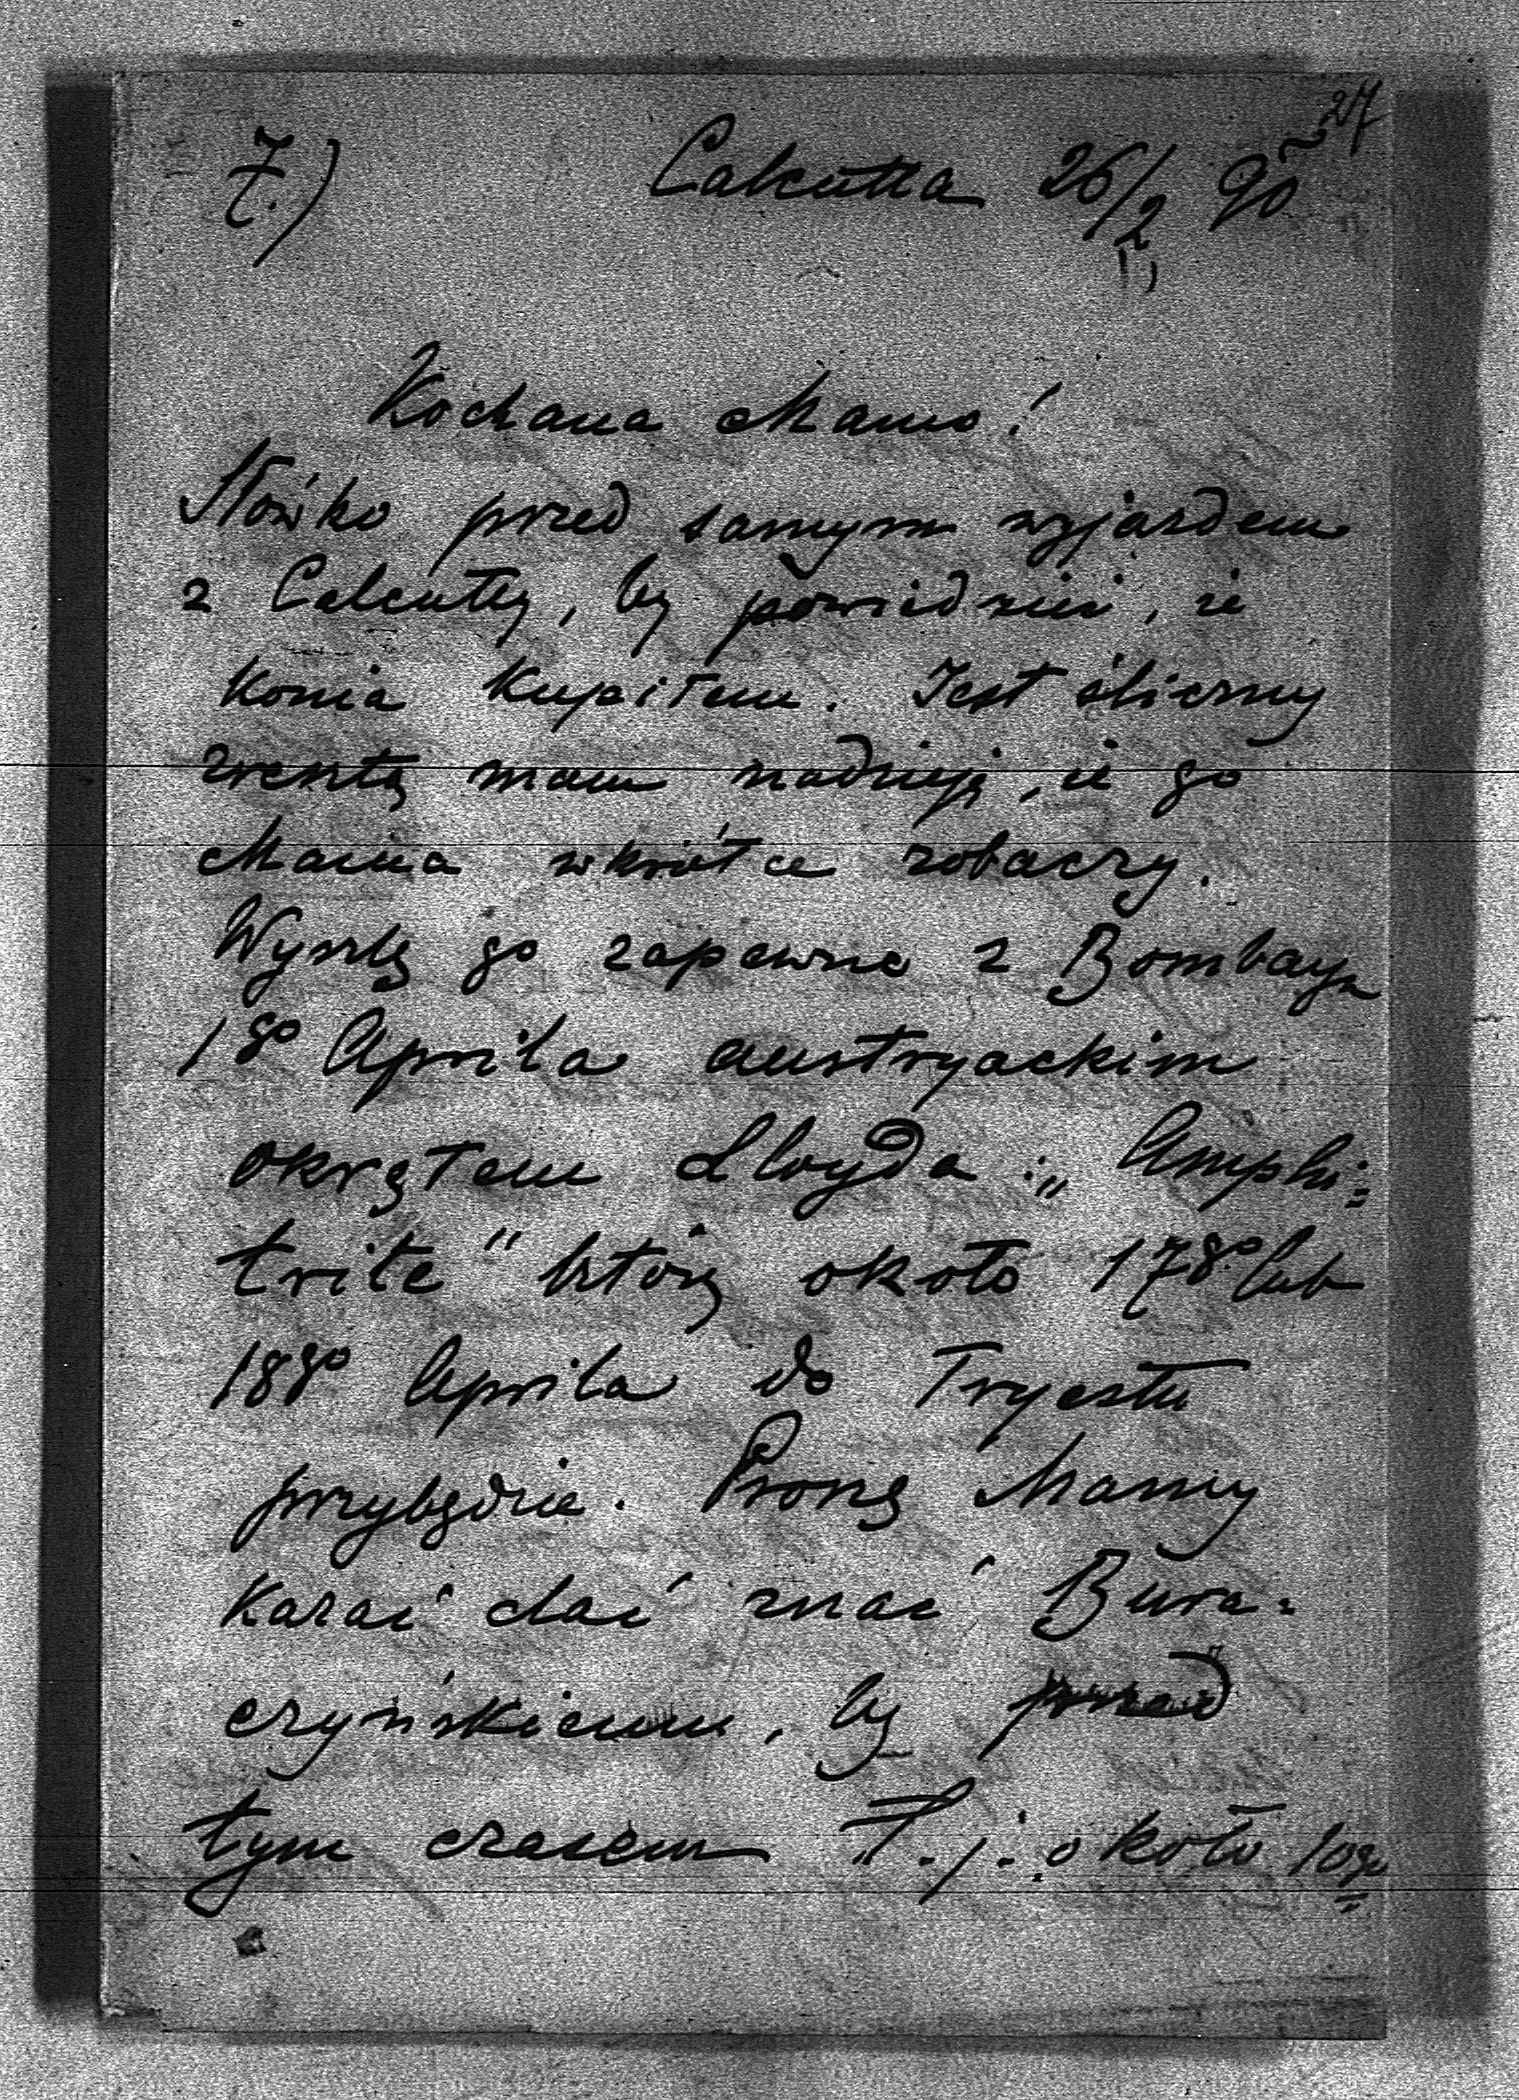 27
7.) Calcutta 26/2 90
Kochana Mamo!
Słówko przed samym wyjazdem
z Calcuty, by powiedzieć, że
konia kupiłem. Jest śliczny
zresztą mam nadzieję, że go
Mama wkrótce zobaczy.
Wyszlę go zapewne z Bombayu
1go Aprila austryackim
okrętem Lloyda: „Amphi=
trite" który około 17go lub
18go Aprila do Tryestu
przybędzie. Proszę Mamy
kazać dać znać Bura-
czyńskiemu, by przed
tym czasem t.j. około 10go